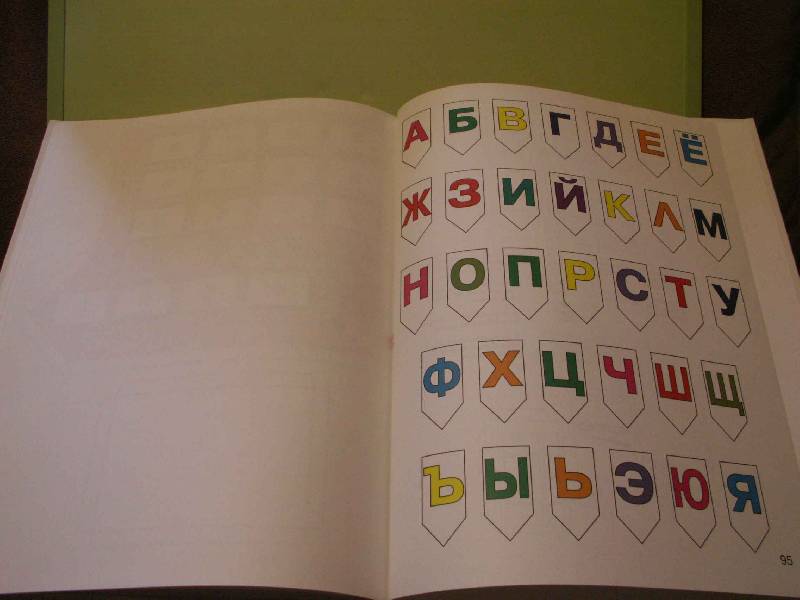 А Б В Г Д Е Ё
Ж З И Й К Л М
Н О П Р С Т У
Ф Х Ц Ч Ш Щ
Ъ Ы Ь Э Ю Я
95